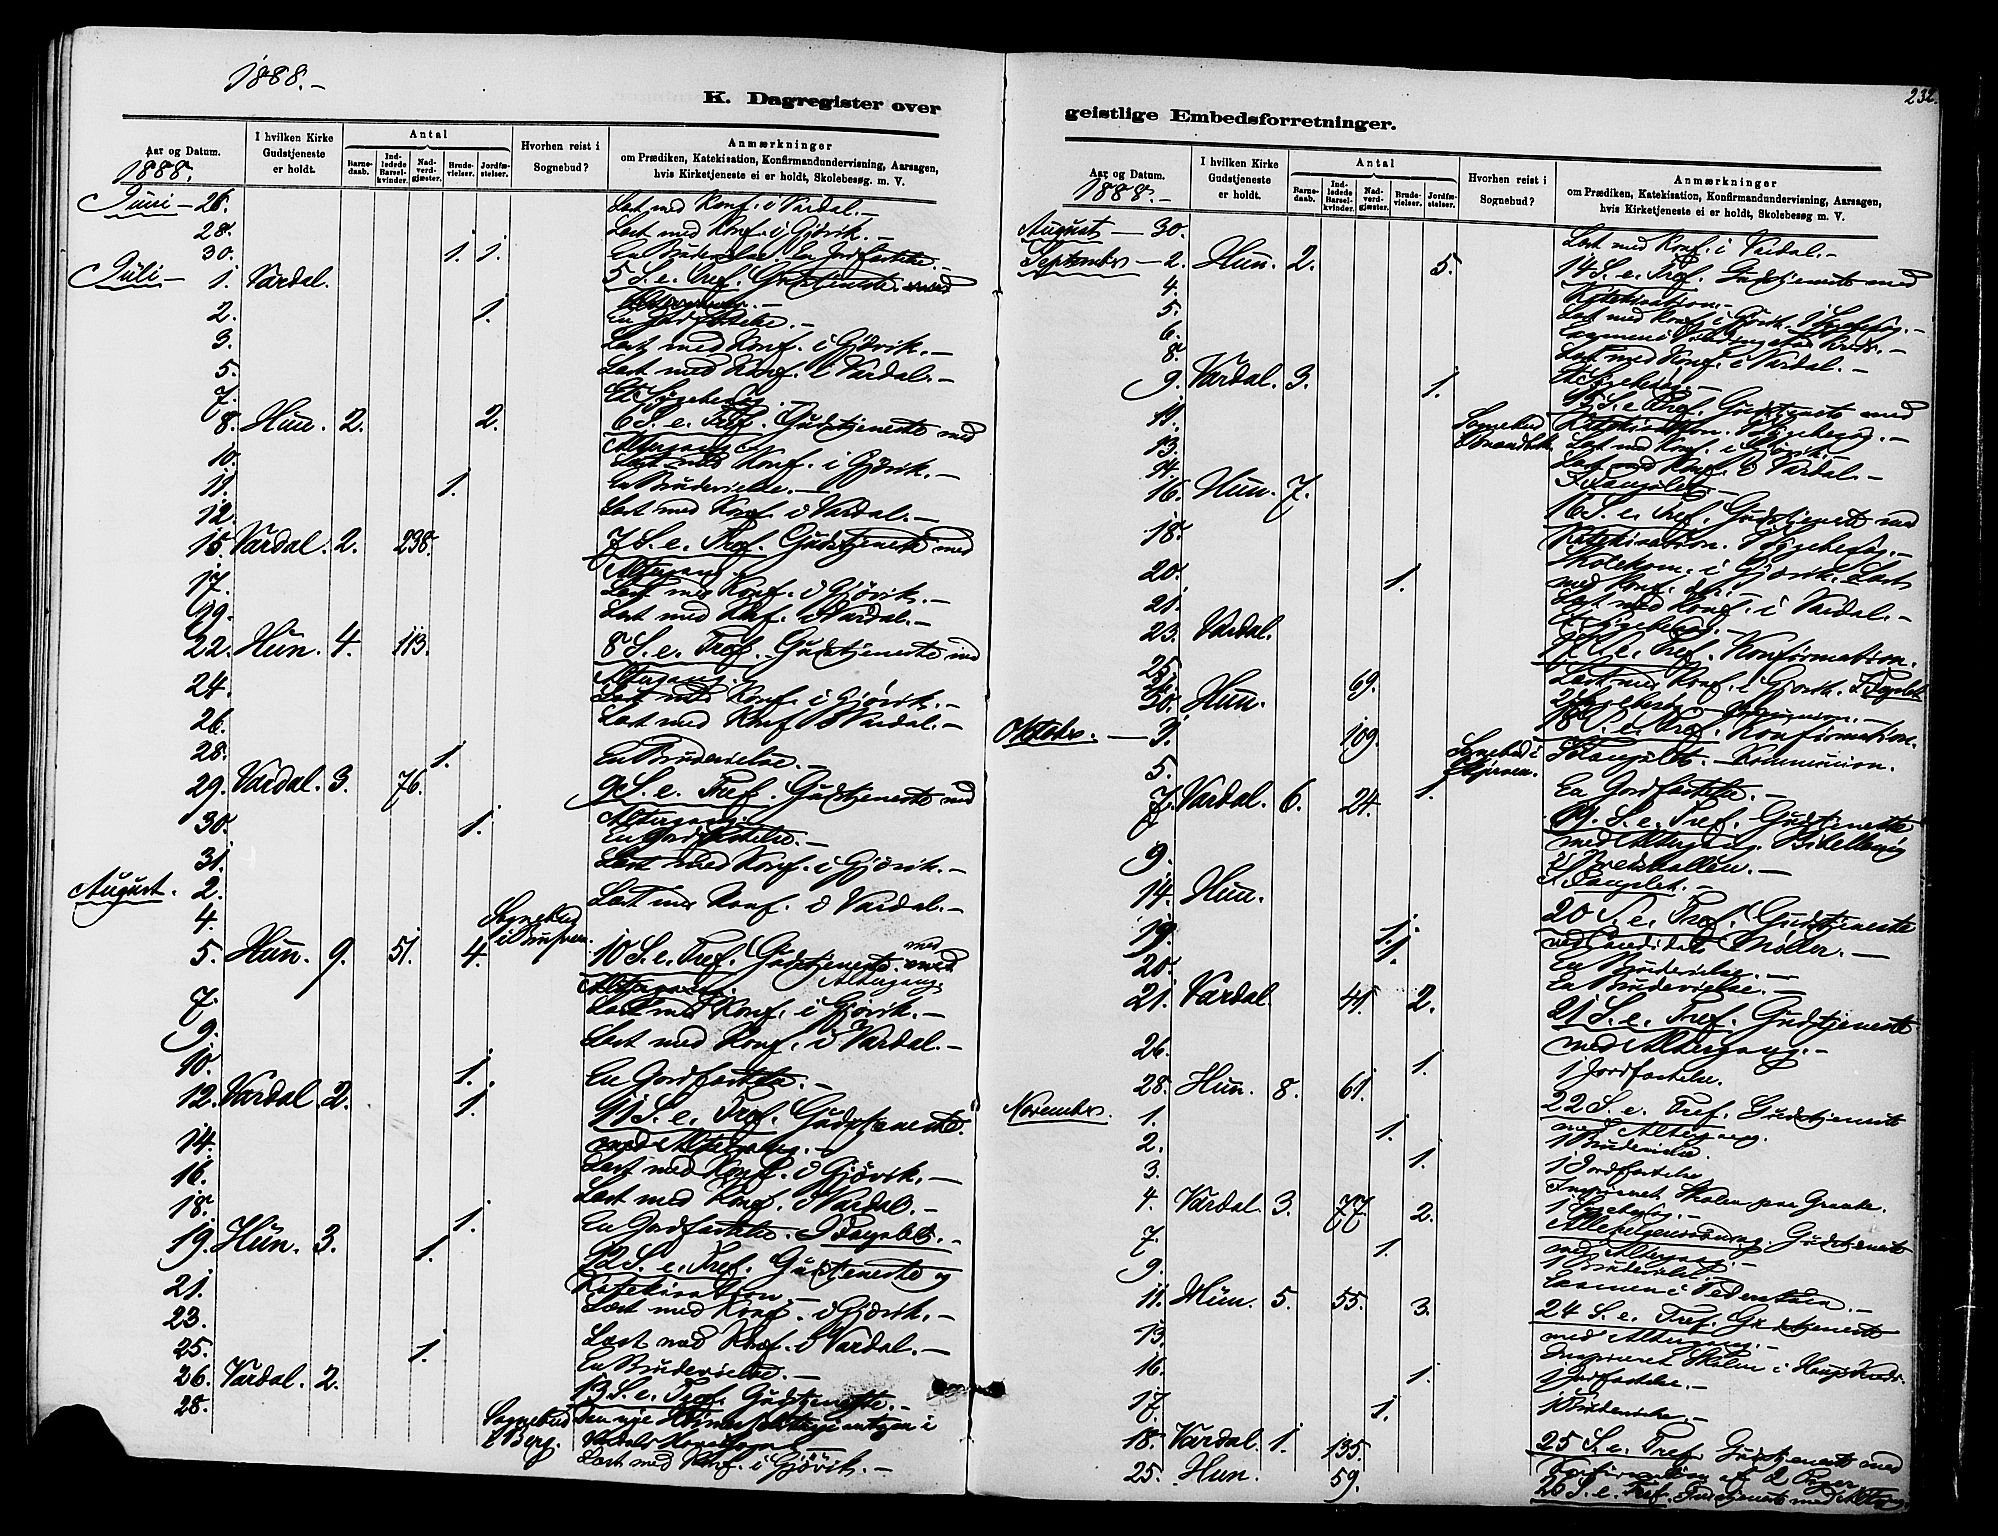 1888.-
K. Dagregister over
Aar og Datum.
I hvilken Kirke Gudstjeneste er holdt.
Antal
Barnedaab.
Indledede Barselkvinder.
Nadverdgjæster.
Brudevielser.
Jordfæstelser.
Hvorhen reist i Sognebud?
Anmærkninger
om Prædiken, Katekisation, Konfirmandundervisning, Aarsagen,
hvis Kirketjeneste ei er holdt, Skolebesøg m. V.
1888.
Juni - 26. Læst med Konf. i Vardal.-
28. Læst med Konf. i Gjövik.-
30. 1. 1. En Brudevielse. En Jordfæstelse.-
Juli - 1. Vardal. 5 S. e. Tref. Gudstjeneste med
2. 1. En Jordfæstelse.-
3. Læst med Konf. i Gjövik.-
5. Læst med Konf. i Vardal.-
7. Et Sygebesøg.
8. Hun. 2. 2. 6 S. e. Tref. Gudstjeneste med
Altergang
10. Læst med Konf. i Gjövik.-
11. 1. En Brudevielse.-
12. Læst med Konf. i Vardal.-
15. Vardal. 2. 238. 7 S. e. Tref. Gudstjeneste med
Altergang.
17. Læst med Konf. i Gjövik.-
19. Læst med Konf. i Vardal.-
22. Hun. 4. 113. 8 S. e. Tref. Gudstjeneste med
Altergang.
24. Læst med Konf. i Gjövik.-
26. Læst med Konf i Vardal.-
28. 1. En Brudevielse.-
29. Vardal. 3. 76. 9 S. e. Tref. Gudstjeneste med
Altergang.
30. 1. En Jordfæstelse.-
31. Læst med Konf. i Gjövik.-
August. 2. Læst med Konf. i Vardal.-
4. Sognebud
5. Hun. 9. 51. 4. 10 S. e. Tref. Gudstjeneste med
Altergang.
7. Læst med Konf. i Gjövik.-
9. Læst med Konf. i Vardal.-
10. 1. En Jordfæstelse.-
12. Vardal. 2. 1. 11 S. e. Tref. Gudstjeneste
med Altergang.-
14. Læst med Konf. i Gjövik.-
16. Læst med Konf. i Vardal.-
18. 1. En Jordfæstelse.
19. Hun. 3. 1. 12 S. e. Tref. Gudstjeneste og
Katekisation.-
21. Læst med Konf. i Gjövik.-
23. Læst med Konf. i Vardal.-
25. 1. En Brudevielse.-
26. Vardal. 2. 13 S. e. Tref. Gudstjeneste.-
28. Sognebud i Berg.
Læst med Konf. i Gjövik.-
232.
geistlige Embedsforretninger.
Aar og Datum.
I hvilken Kirke Gudstjeneste er holdt.
Antal
Barnedaab.
Indledede Barselkvinder.
Nadverdgjæster.
Brudevielser.
Jordfæstelser.
Hvorhen reist i Sognebud?
Anmærkninger
om Prædiken, Katekisation, Konfirmandundervisning, Aarsagen,
hvis Kirketjeneste ei er holdt, Skolebesøg m. V.
1888.-
August - 30. Læst med Konf. i Vardal.-
September - 2. Hun. 2. 5. 14 S. e. Tref. Gudstjeneste med
Katekisation.-
4. Læst med Konf. i Gjövik.
5.
6. Læst med Konf. i Vardal.-
8. Et Sygebesøg.-
9. Vardal. 3. 1. 15 S. e. Tref. Gudstjeneste med
Katekisation.
11. Sognebud Læst med Konf. i Gjövik.
13. Læst med Konf. i Vardal.-
14. I Fængslet.-
16. Hun. 7. 16 S. e. Tref. Gudstjeneste med
Katekisation.
18. Skolekom. i Gjövik. Læst
med Konf.
20. 1. Læst med Konf. i Vardal.-
21. Et Sygebesøg.-
23. Vardal. 17 S. e. Tref. Konfirmation.
25. Læst med Konf. i Gjövik. I Fængslet
69.
30. Hun. 18 S. e. Tref. Konfirmation.
Oktober. - 3. 109. Sognebud i Kommunion.
5. En Jordfæstelse.-
7. Vardal. 6. 24. 1. 19. S. e. Tref. Gudstjeneste
med Altergang.
9. I Fængslet.-
14. Hun. 20 S. e. Tref. Gudstjeneste
ved Candidat Møller.-
19. 1. En Brudevielse.-
20. 1. En Brudevielse.-
21. Vardal 45 2. 21 S. e. Tref. Gudstjeneste
med Altergang.-
26. 1. 1 Jordfæstelse.
28. Hun. 8. 61. 22 S. e. Tref. Gudstjeneste
med Altergang.
November. 1. 1. 1 Brudevielse.
2. 1. 1 Jordfæstelse
3. Skolen paa
4. Vardal. 3. 77. 2. Allehelgenssöndag. Gudstjeneste
med Altergang.
7. 1. 1 Brudevielse.
9. Examen i
11. Hun. 5. 55. 3. 24 S. e. Tref. Gudstjeneste
med Altergang.
13. Skolen i
16. 1. 1 Jordfæstelse.-
17. 1. 1 Brudevielse.-
18. Vardal. 1. 135. 25 S. e. Tref. Gudstjeneste med
25. Hun. 59. 26 S. e. Tref. Gudstjeneste med